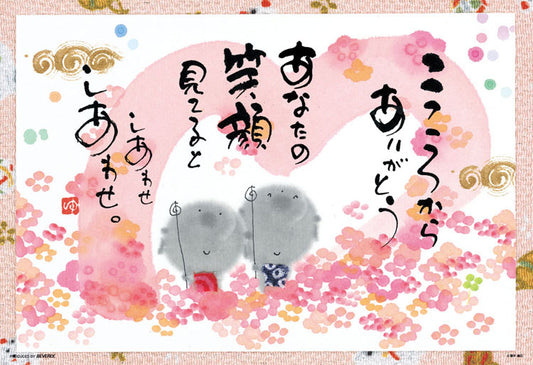 こころから
ありがとう
あなたの
笑顔
見てると
しあわせ
しあわせ。
ゆ
PRODUCED BY BEVEREE